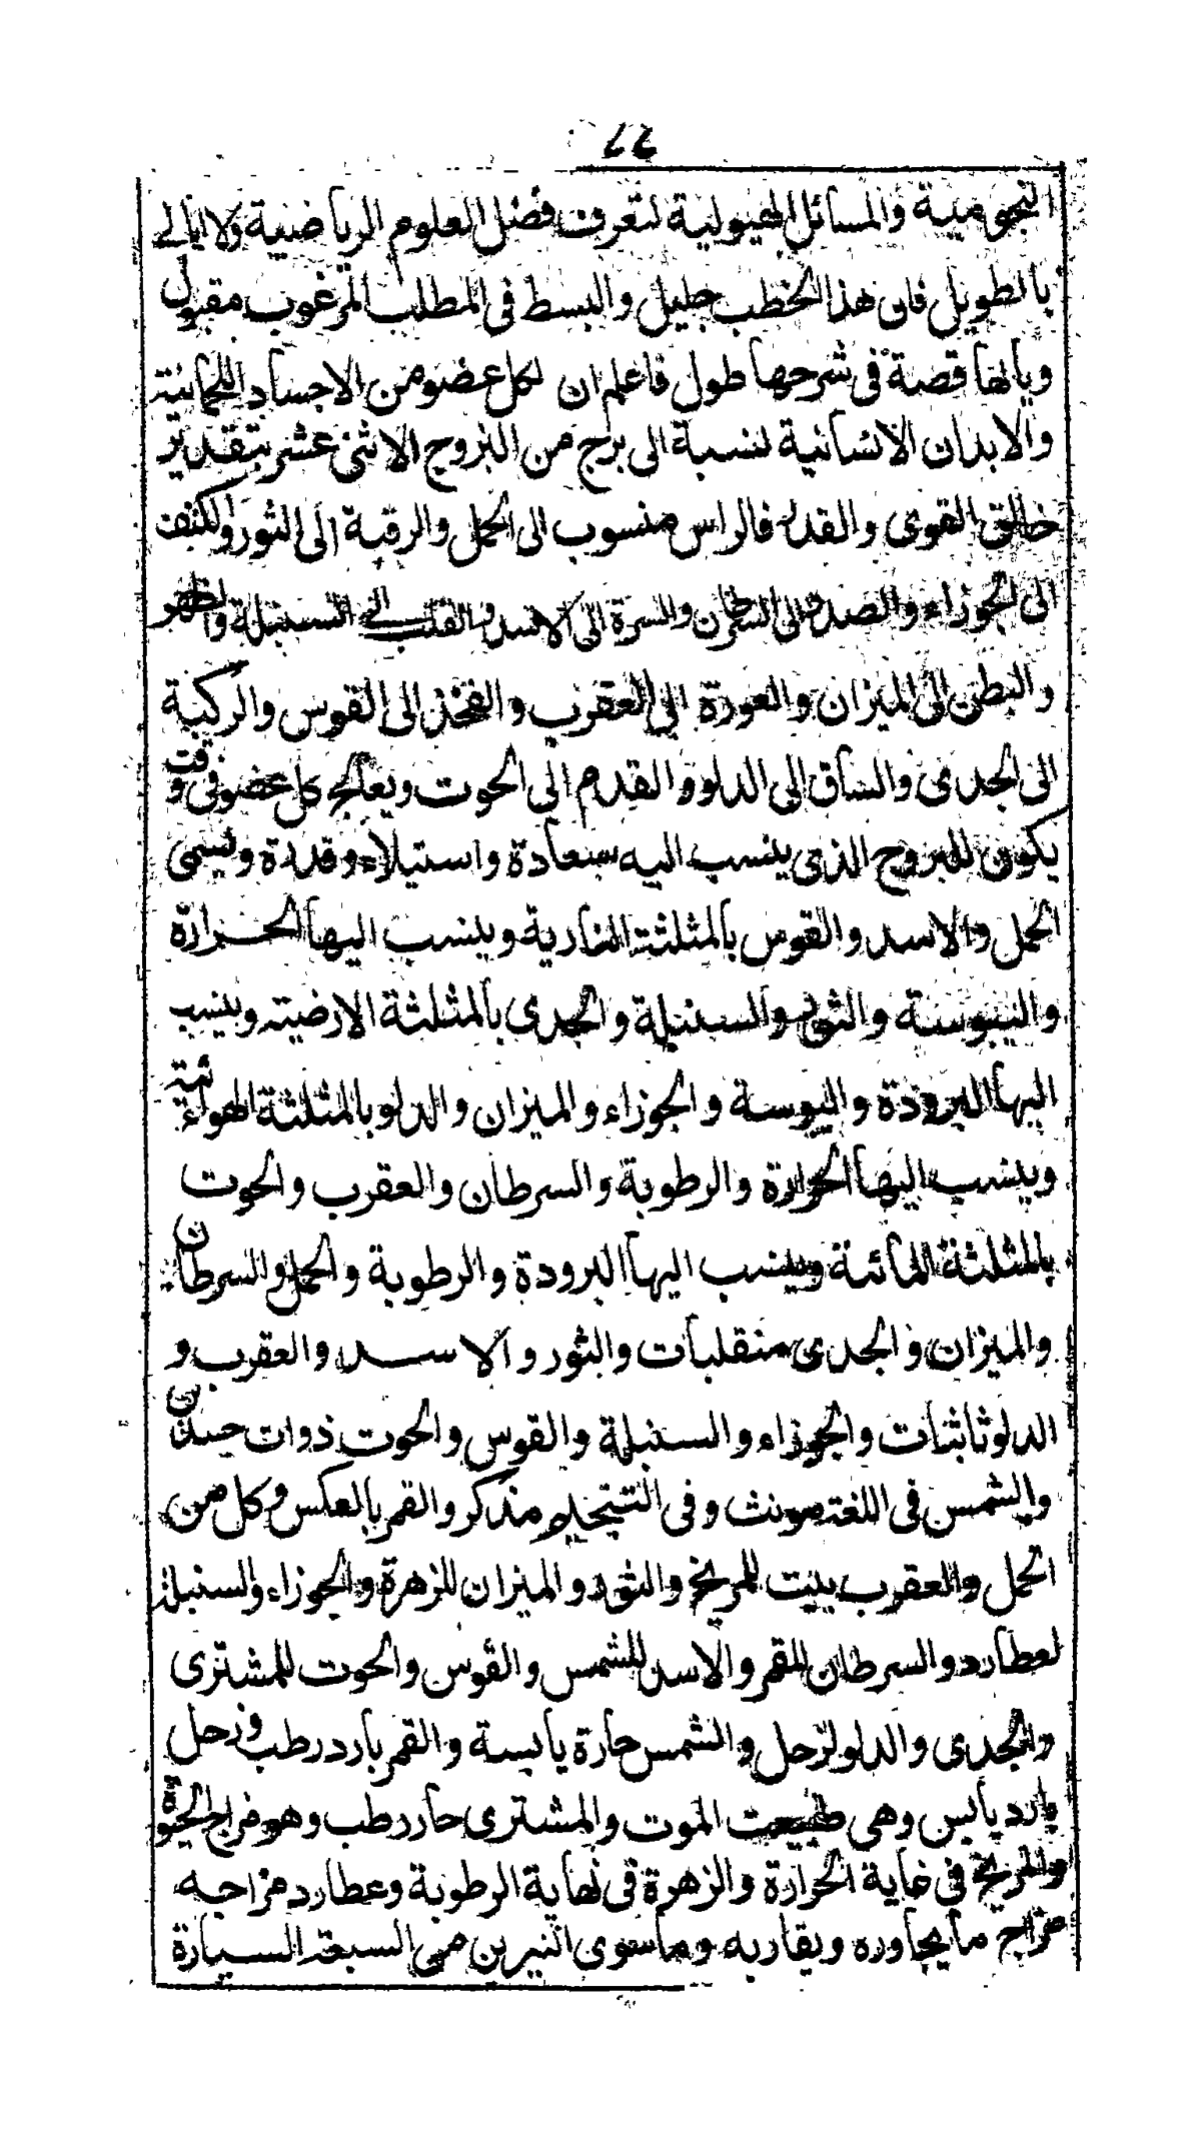 ٢٢
النجومية والمسائل الهيولية لتعرف فضل العلوم الرياضية ولا ابالى
بالطويل فان هذا الخطب جليل والبسط فى المطلب المرغوب مقبول
ويالها قصة فى شرحها طول فاعلم ان لكل عضو من الاجساد اللحمانية
والابدان الانسانية لنسبة الى برج من البروج الاثنى عشر بتقدير
خالق القوى والقدر فالراس منسوب الى الحمل والرقبة الى الثور والكتف
الى الجوزاء والصدر الى السرطان والسرة الى الاسد والقلب الى السنبلة والظهر
والبطن الى الميزان والعورة الى العقرب والفخذ الى القوس والركبة
الى الجدى والساق الى الدلو والقدم الى الحوت ويعالج كل عضو فى وقت
يكون للبروج الذى ينسب اليه سعادة واستيلاء وقدرة وتسمى
الحمل والاسد والقوس بالمثلثة النارية وينسب اليها الحرارة
واليبوسة والثور والسنبلة والجدى بالمثلثة الارضية وينسب
اليها البرودة واليبوسة والجوزاء والميزان والدلو بالمثلثة الهوائية
وينسب اليها الحرارة والرطوبة والسرطان والعقرب والحوت
بالمثلثة المائية وينسب اليها البرودة والرطوبة والحمل والسرطان
والميزان والجدى منقلبات والثور والاسد والعقرب و
الدلو ثابتات والجوزاء والسنبلة والقوس والحوت ذوات جسدين
والشمس فى اللغة مونث وفى التنجيم مذكر والقمر بالعكس وكل من
الحمل والعقرب بيت للمريخ والثور والميزان للزهرة والجوزاء والسنبلة
لعطارد والسرطان للقمر والاسد للشمس والقوس والحوت للمشترى
والجدى والدلو لزحل والشمس حارة يابسة والقمر بارد رطب وزحل
بارد يابس وهى طبيعت الموت والمشترى حار رطب وهو مزاج الحيوة
والمريخ فى غاية الحرارة والزهرة فى نهاية الرطوبة وعطارد مزاجه
مزاج ما يجاوره ويقاربه وما سوى النيرين من السبعة السيارة